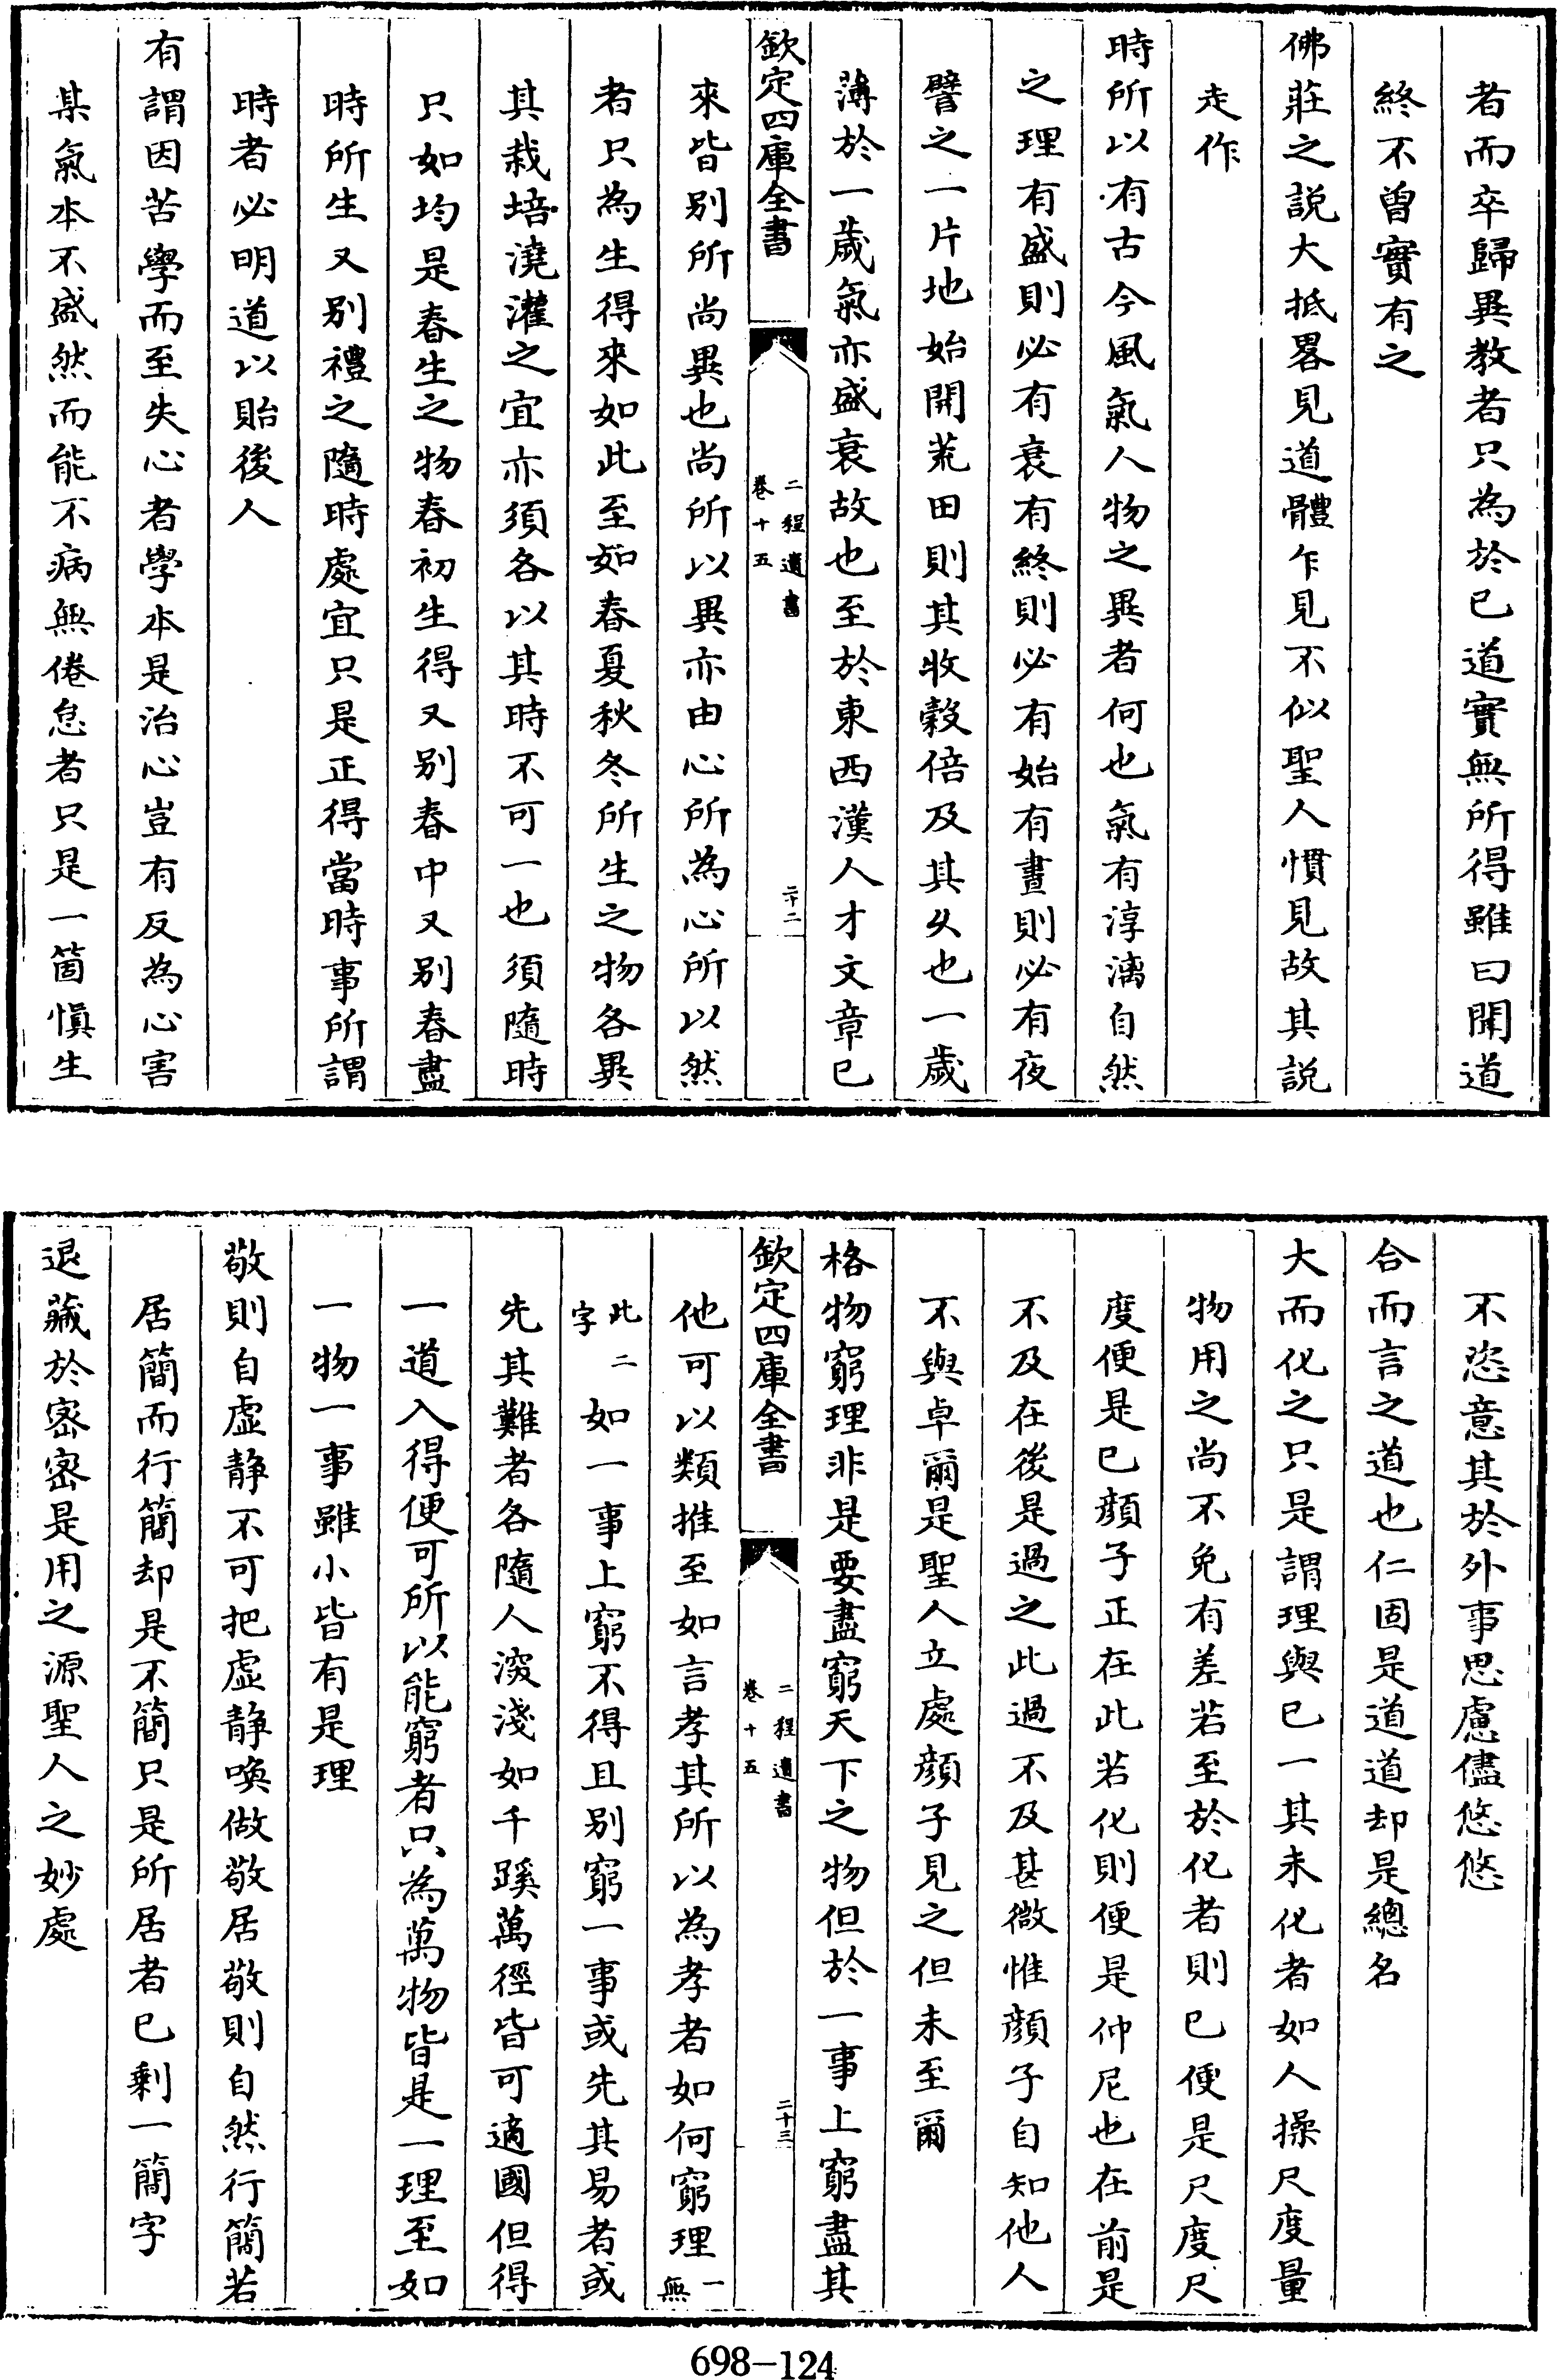 者而卒歸異教者只為於己道實無所得雖曰聞道
終不曾實有之
佛莊之説大抵畧見道體乍見不似聖人慣見故其説
走作
時所以有古今風氣人物之異者何也氣有淳漓自然
之理有盛則必有衰有終則必有始有晝則必有夜
譬之一片地始開荒田則其收穀倍及其久也一歲
薄於一歲氣亦盛衰故也至於東西漢人才文章已
欽定四庫全書
二程遺書
卷十五
二十二
來皆别所尚異也尚所以異亦由心所為心所以然
者只為生得來如此至如春夏秋冬所生之物各異
其栽培澆灌之宜亦須各以其時不可一也須隨時
只如均是春生之物春初生得又别春中又别春盡
時所生又别禮之隨時處宜只是正得當時事所謂
時者必明道以貽後人
有謂因苦學而至失心者學本是治心豈有反為心害
某氣本不盛然而能不病無倦怠者只是一箇慎生
不恣意其於外事思慮儘悠悠
合而言之道也仁固是道道却是總名
大而化之只是謂理與已一其未化者如人操尺度量
物用之尚不免有差若至於化者則已便是尺度尺
度便是已顔子正在此若化則便是仲尼也在前是
不及在後是過之此過不及甚微惟顔子自知他人
不與卓爾是聖人立處顔子見之但未至爾
格物窮理非是要盡窮天下之物但於一事上窮盡其
欽定四庫全書
二程遺書
卷十五
二十三
他可以類推至如言孝其所以為孝者如何窮理一無
此二字如一事上窮不得且别窮一事或先其易者或
先其難者各隨人深淺如千蹊萬徑皆可適國但得
一道入得便可所以能窮者只為萬物皆是一理至如
一物一事雖小皆有是理
敬則自虛静不可把虛静喚做敬居敬則自然行簡若
居簡而行簡却是不簡只是所居者已剩一簡字
退藏於密密是用之源聖人之妙處
698-124